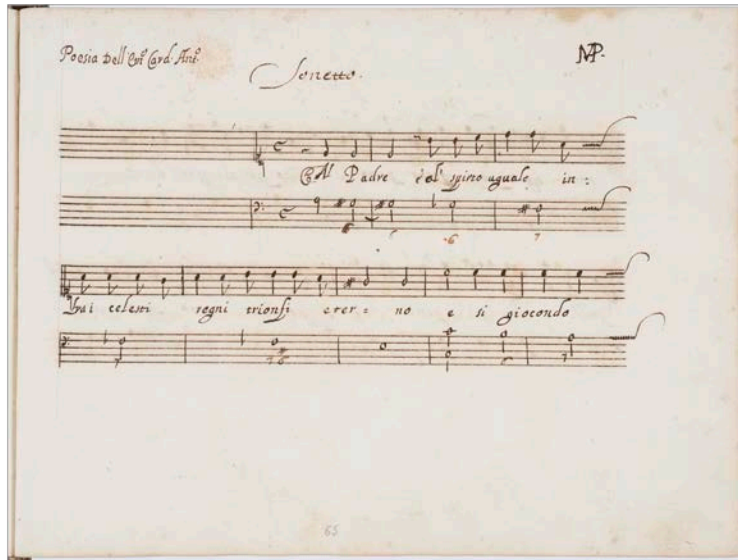 Poesia Dell' Em.º Card. Ant.º
MP.
Sonetto.
Al Padre e al spirto uguale in:
Trai celesti regni trionfi eter: no e si giocondo
65